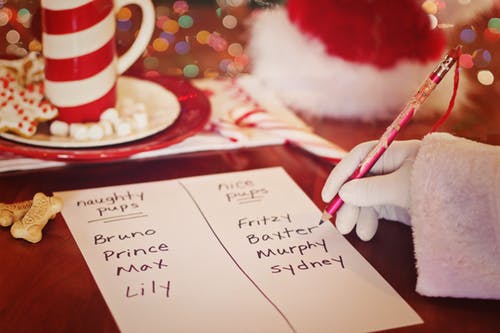 naughty pups
Bruno
Prince
Max
Lily
nice pups
Fritzy
Baxter
Murphy
Sydney